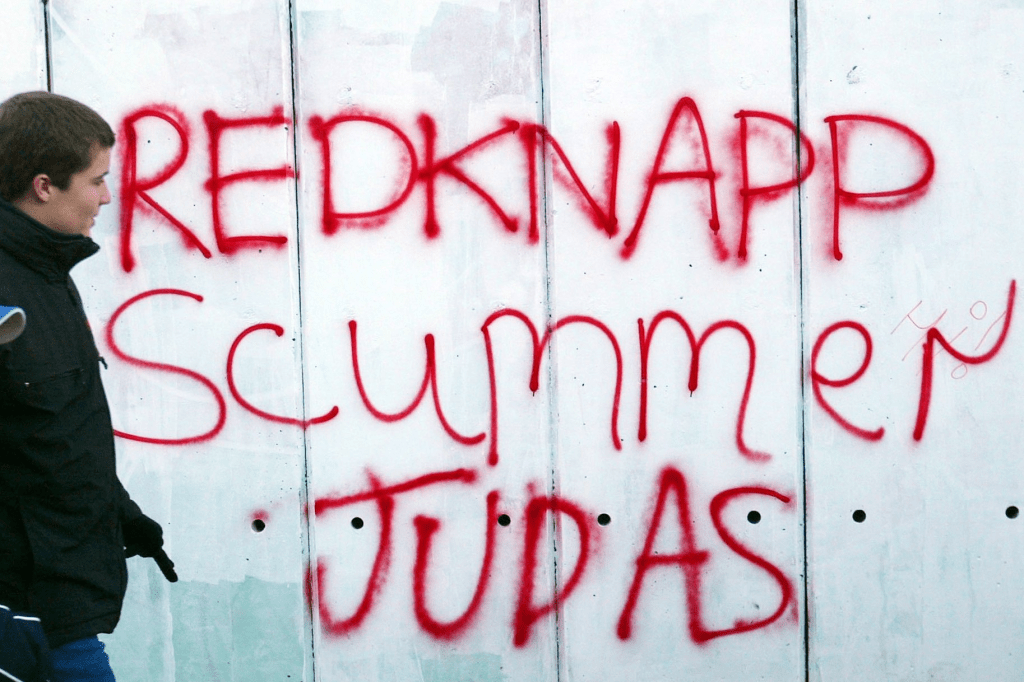 REDKNAPP
Scummer
JUDAS